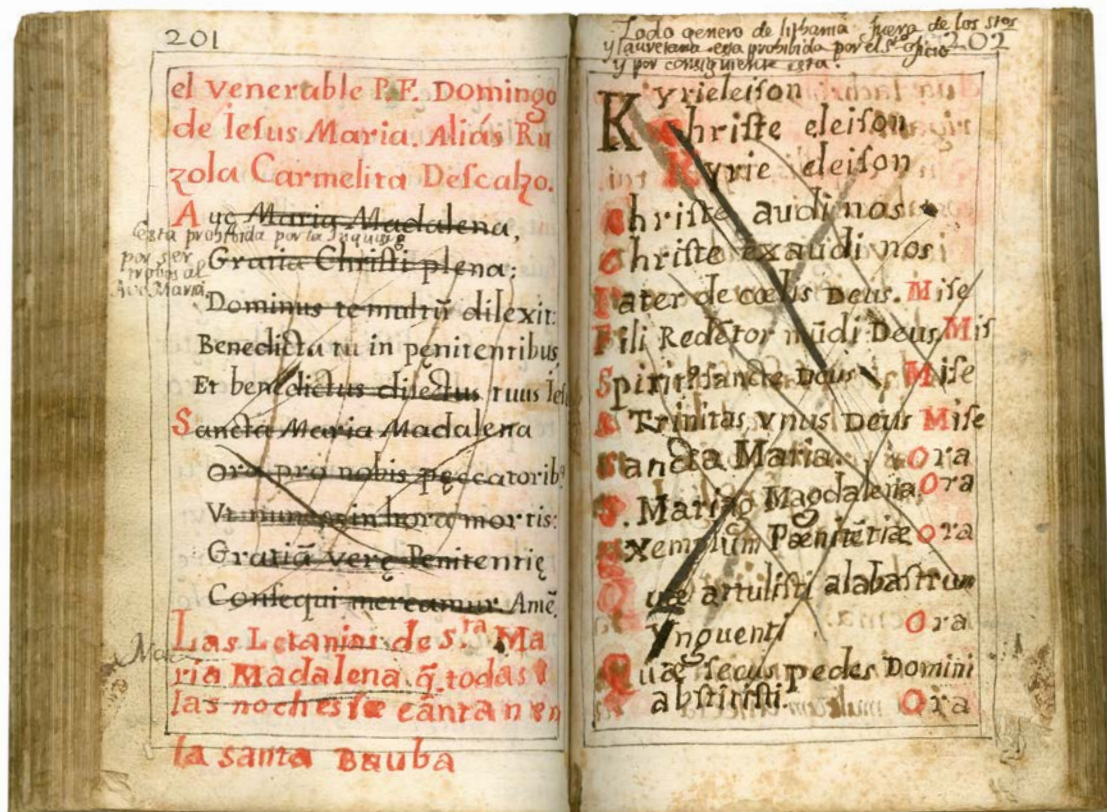 201
el venerable P.F. Domingo
de Iesus Maria. Aliás Ru
zola Carmelita Descalzo.
Aue Maria Madalena,
esta prohibida por la Inquisiç
por ser
trobos al
Ave Maria
Gratia Christi plena;
Dominus te multū dilexit:
Benedicta tu in pęnitentibus,
Et benedictus dilectus tuus Ies
Sancta Maria Madalena
Ora pro nobis pęccatorib9
Vt nunc in hora mortis:
Gratiā verę Penitentię
Consequi mereamur Amē.
Las Letanias de s.ra Ma
ria Madalena q̄ todas
las noches se cantan en
la santa Bauba
Todo genero de litbania fuera de los stos
y lauretana esta prohibida por el sto oficio
202
y por consiguiente esta.
Kyrieleison
Christe eleison
Kyrie eleison
Christe audi nos
Christe exaudi nos
Pater de cœlis Deus. Mise
Fili Redētor mūdi Deus, Mis
Spirit9 sancte Deus Mise
S Trinitas vnus Deus Mise
Sancta Maria. Ora
S. Maria Magdalena Ora
Exemplum Pænitētiæ Ora
Quæ attulisti alabastrum
Vnguenti Ora
Quæ secus pedes Domini
abstitisti. Ora